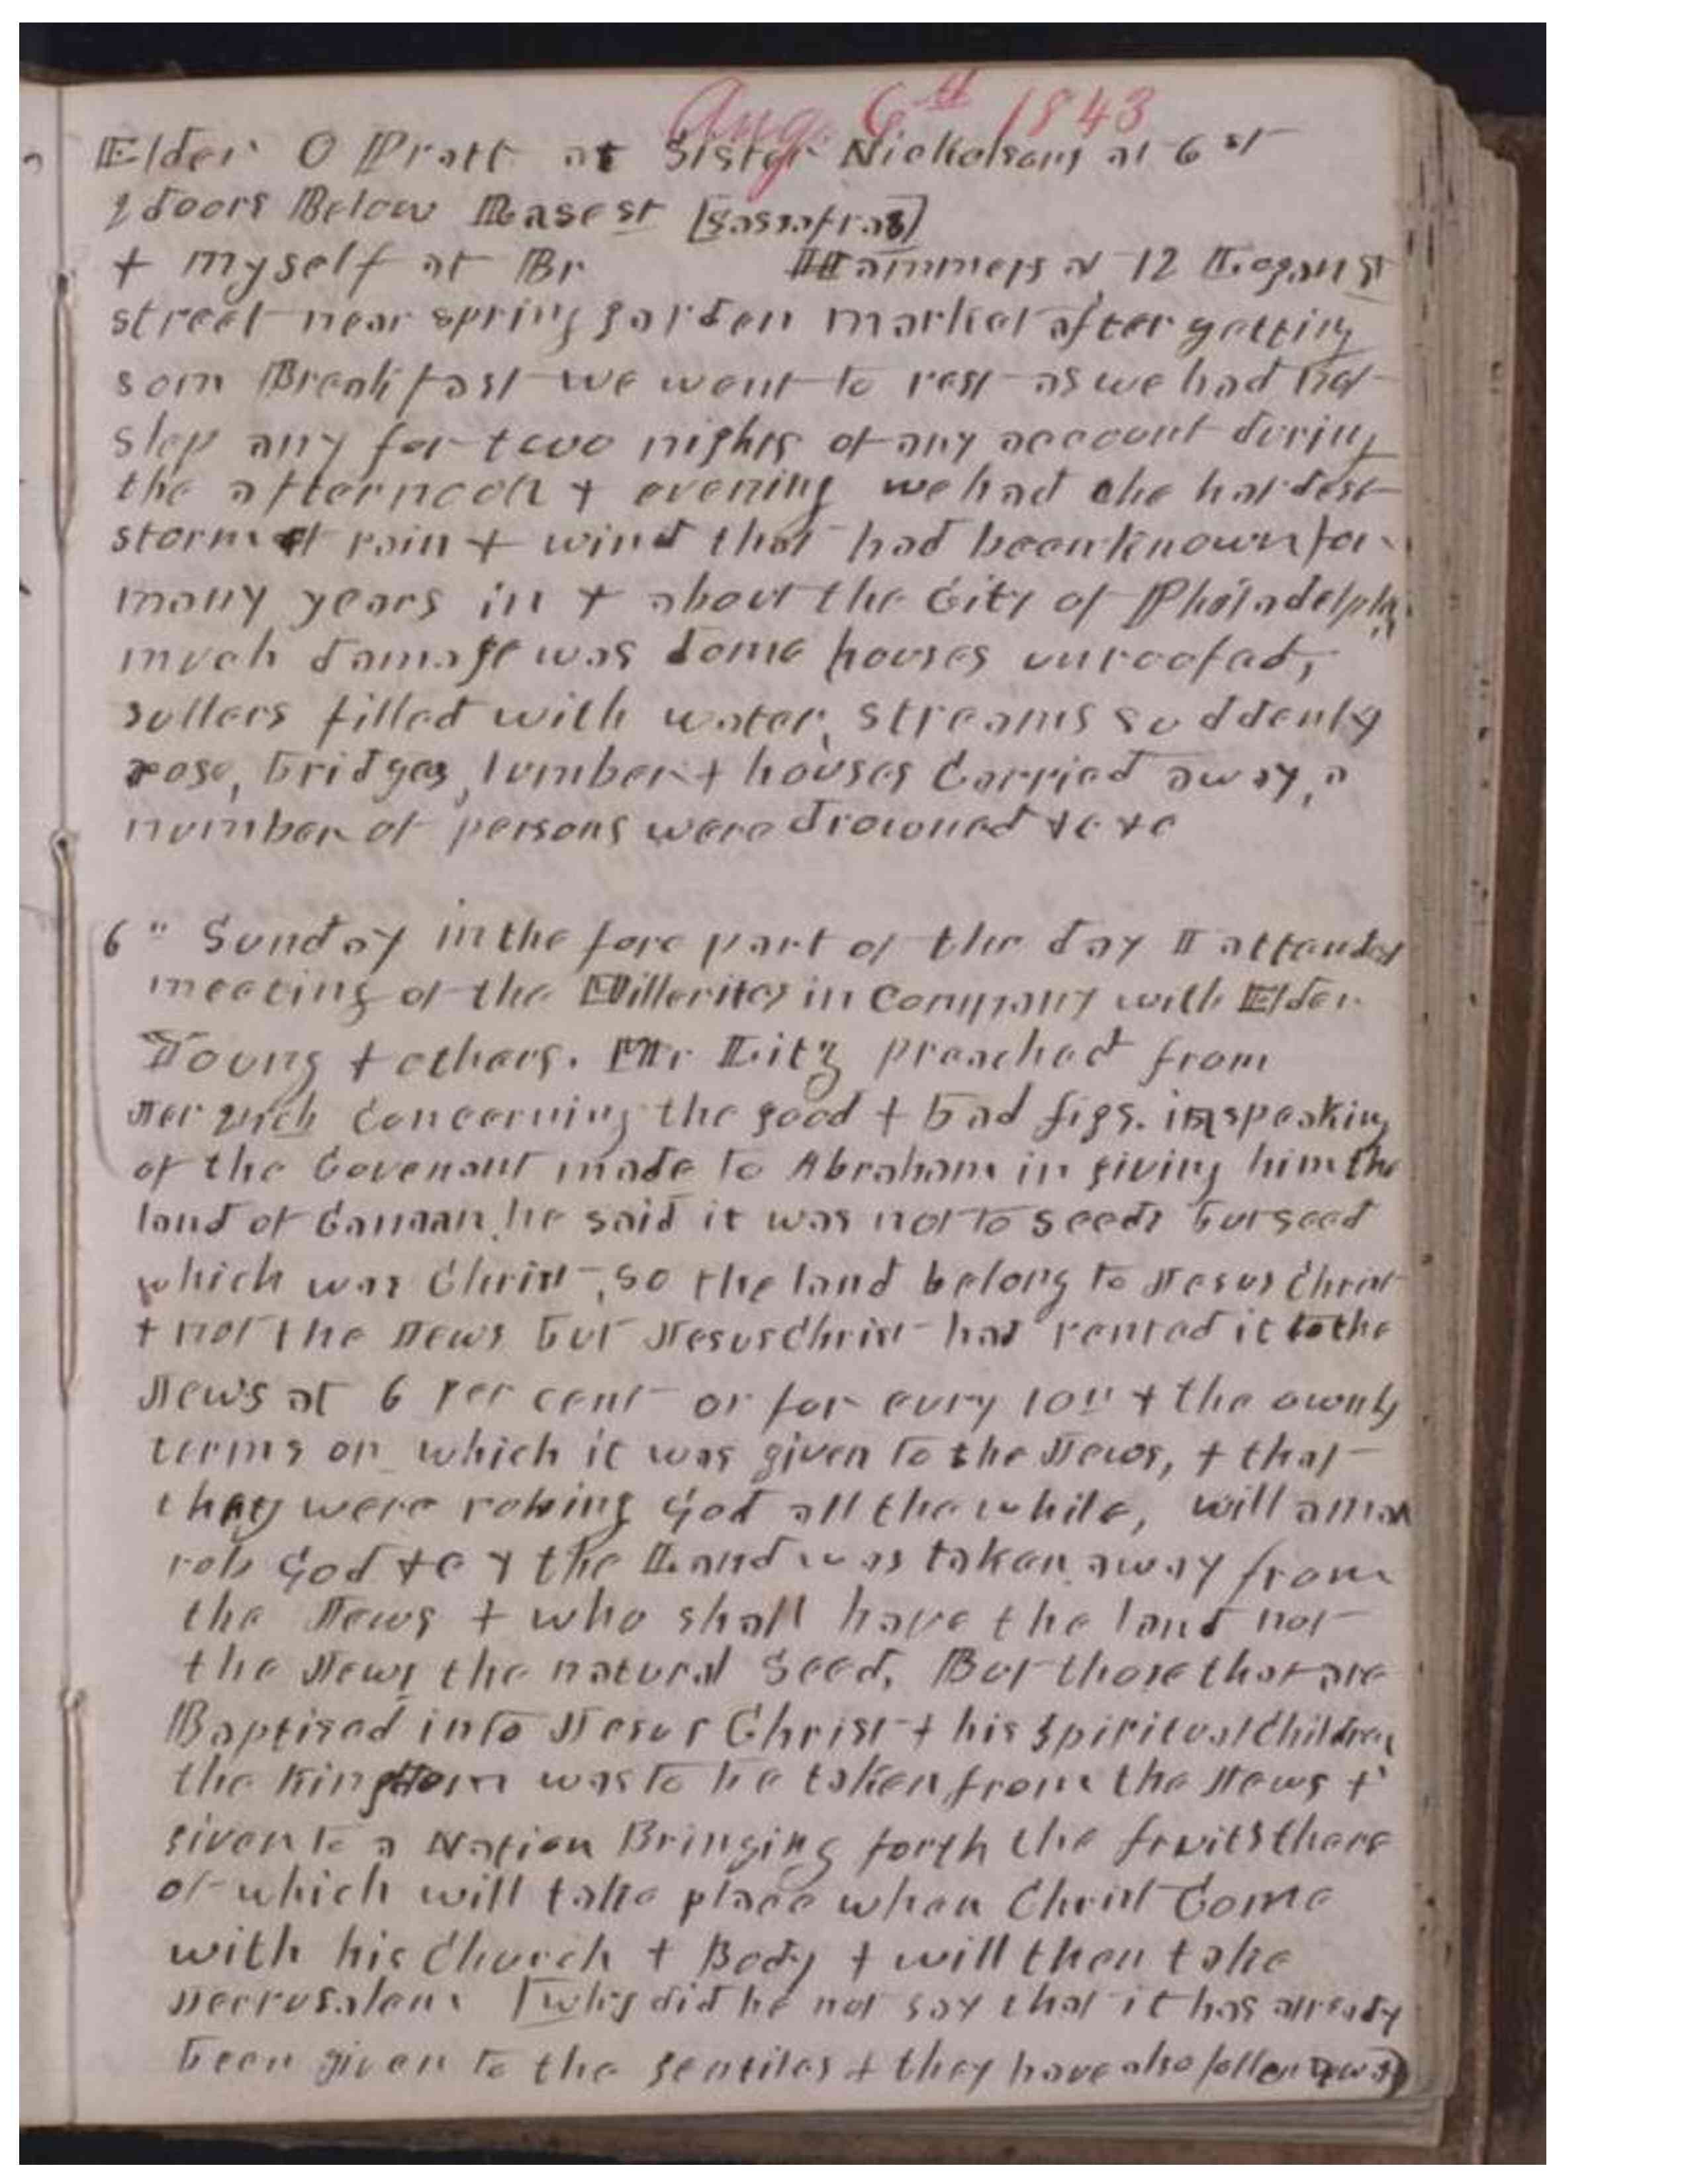 Aug. 6th 1843
Elder O Pratt at Sister Nickolsons at 6 st
2 doors Below Rase st [sassafras]
+ myself at Br Hammers N 12 Logan st
street near spring garden market after getting
som Breakfast we went to rest as we had not
slep any for two nights of any account during
the afternoon + evening we had the hardest
storm of rain + wind that had been known for
many years in + about the City of Philadelphia
much damage was done houses unroofed,
sullers filled with water, streams suddenly
rose, bridges, lumber + houses Carried away, a
number of persons were drowned &c &c
6" Sunday in the fore part of the day I attended
meeting of the Millerites in Company with Elder
Young + others. Mr Litz preached from
Jer Concerning the good + bad figs. in speaking
of the Covenant made to Abraham in giving him the
land of Canaan, he said it was not to seeds but seed
which was Christ, so the land belong to Jesus Christ
+ not the Jews but Jesus Christ had rented it to the
Jews at 6 per cent or for evry 10" + the ownly
terms on which it was given to the Jews, + that
they were robing God all the while, will a man
rob God &c + the Land was taken away from
the Jews + who shall have the land not
the Jews the natural Seed, But those that are
Baptised into Jesus Christ + his spiritual Children
the kingdom was to be taken from the Jews +
given to a Nation Bringing forth the fruits there
of which will take place when Christ Come
with his Church + Body + will then take
Jerrusalem [why did he not say that it has already
been given to the gentiles + they have also fallen away]